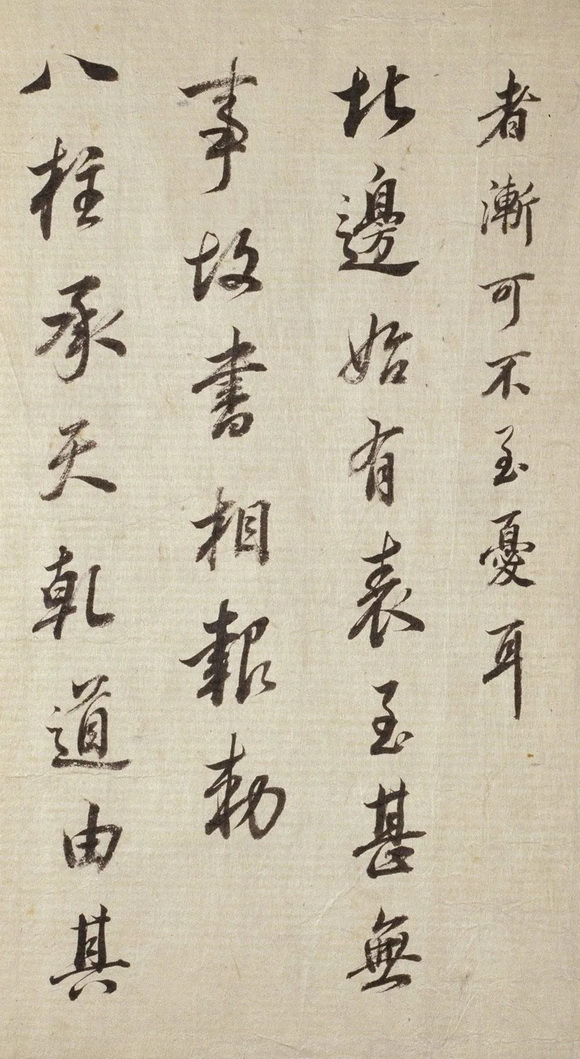 者漸可不至憂耳
北邊始有表至甚無
事故書相報勅
八柱承天乾道由其